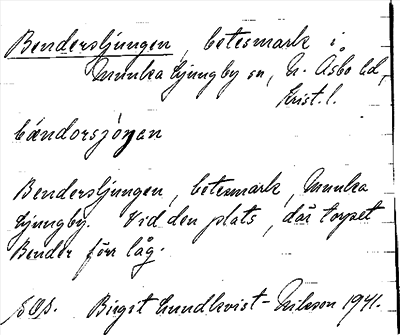 Bendersljungen, betesmark i
Munka Ljungby sn, N. Åsbo hd,
Krist. l.
bændorsjöŋan
Bendersljungen, betesmark, Munka
Ljungby. Vid den plats, där torpet
Bender förr låg.
Birgit Lundkvist-Nilsson 1941.